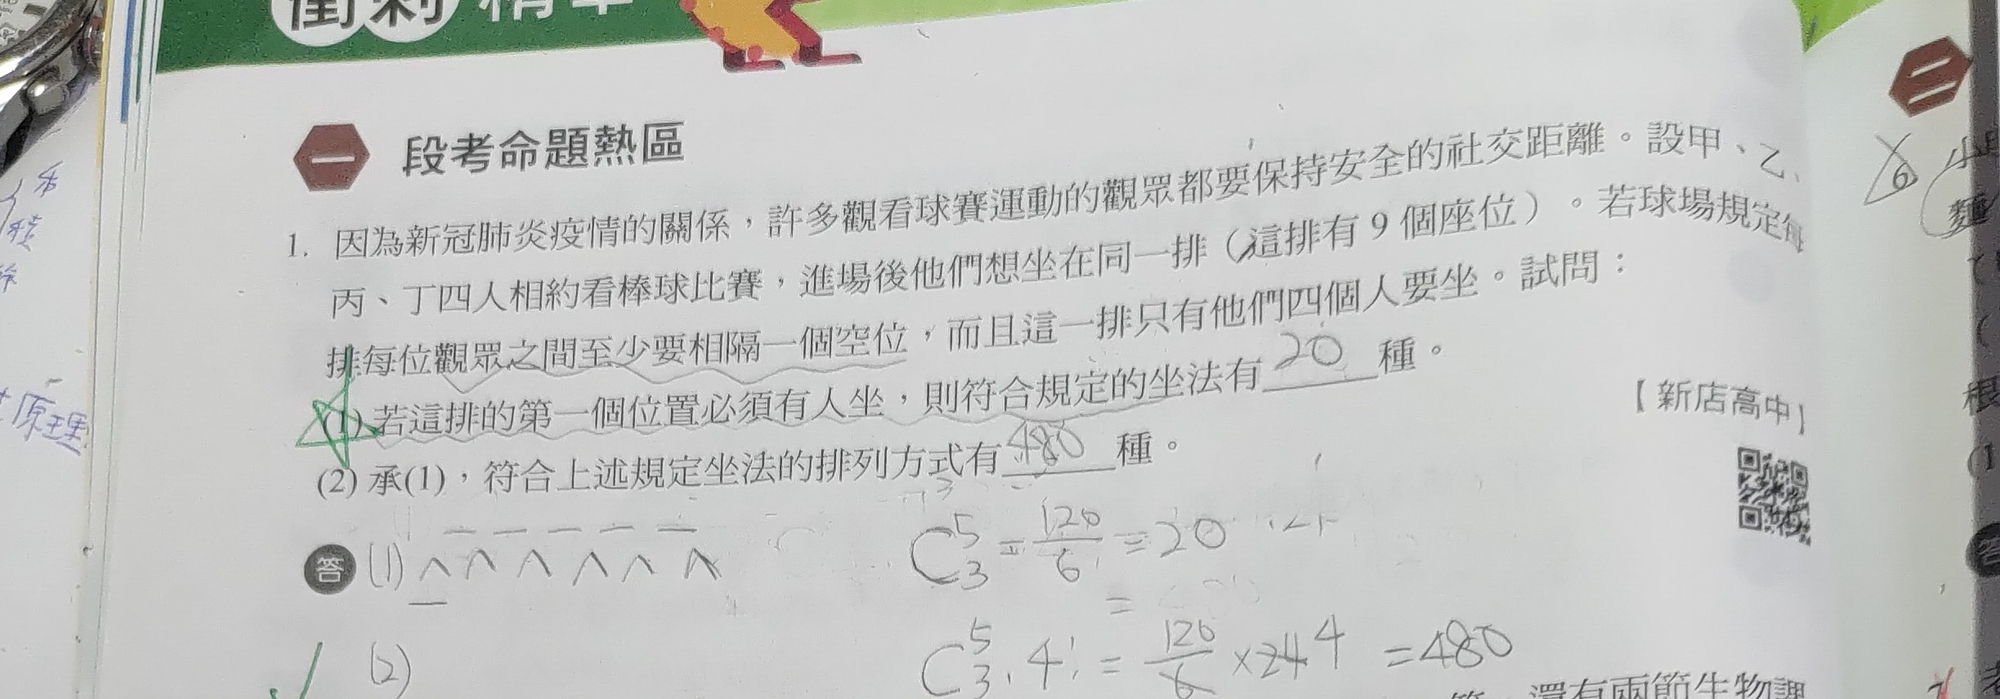 衝刺精華
一 段考命題熱區
1. 因為新冠肺炎疫情的關係，許多觀看球賽運動的觀眾都要保持安全的社交距離。設甲、乙、
丙、丁四人相約看棒球比賽，進場後他們想坐在同一排（這排有9個座位）。若球場規定每
排每位觀眾之間至少要相隔一個空位，而且這一排只有他們四個人要坐。試問：
(1) 若這排的第一個位置必須有人坐，則符合規定的坐法有 20 種。
(2) 承(1)，符合上述規定坐法的排列方式有 480 種。
【新店高中】
答 (1)
C⁵₃ = 120/6 = 20
(2) C⁵₃ · 4! = 120/6 × 24 4 = 480
還有兩節生物課
原理
積
二
6
麵
根
(1
答